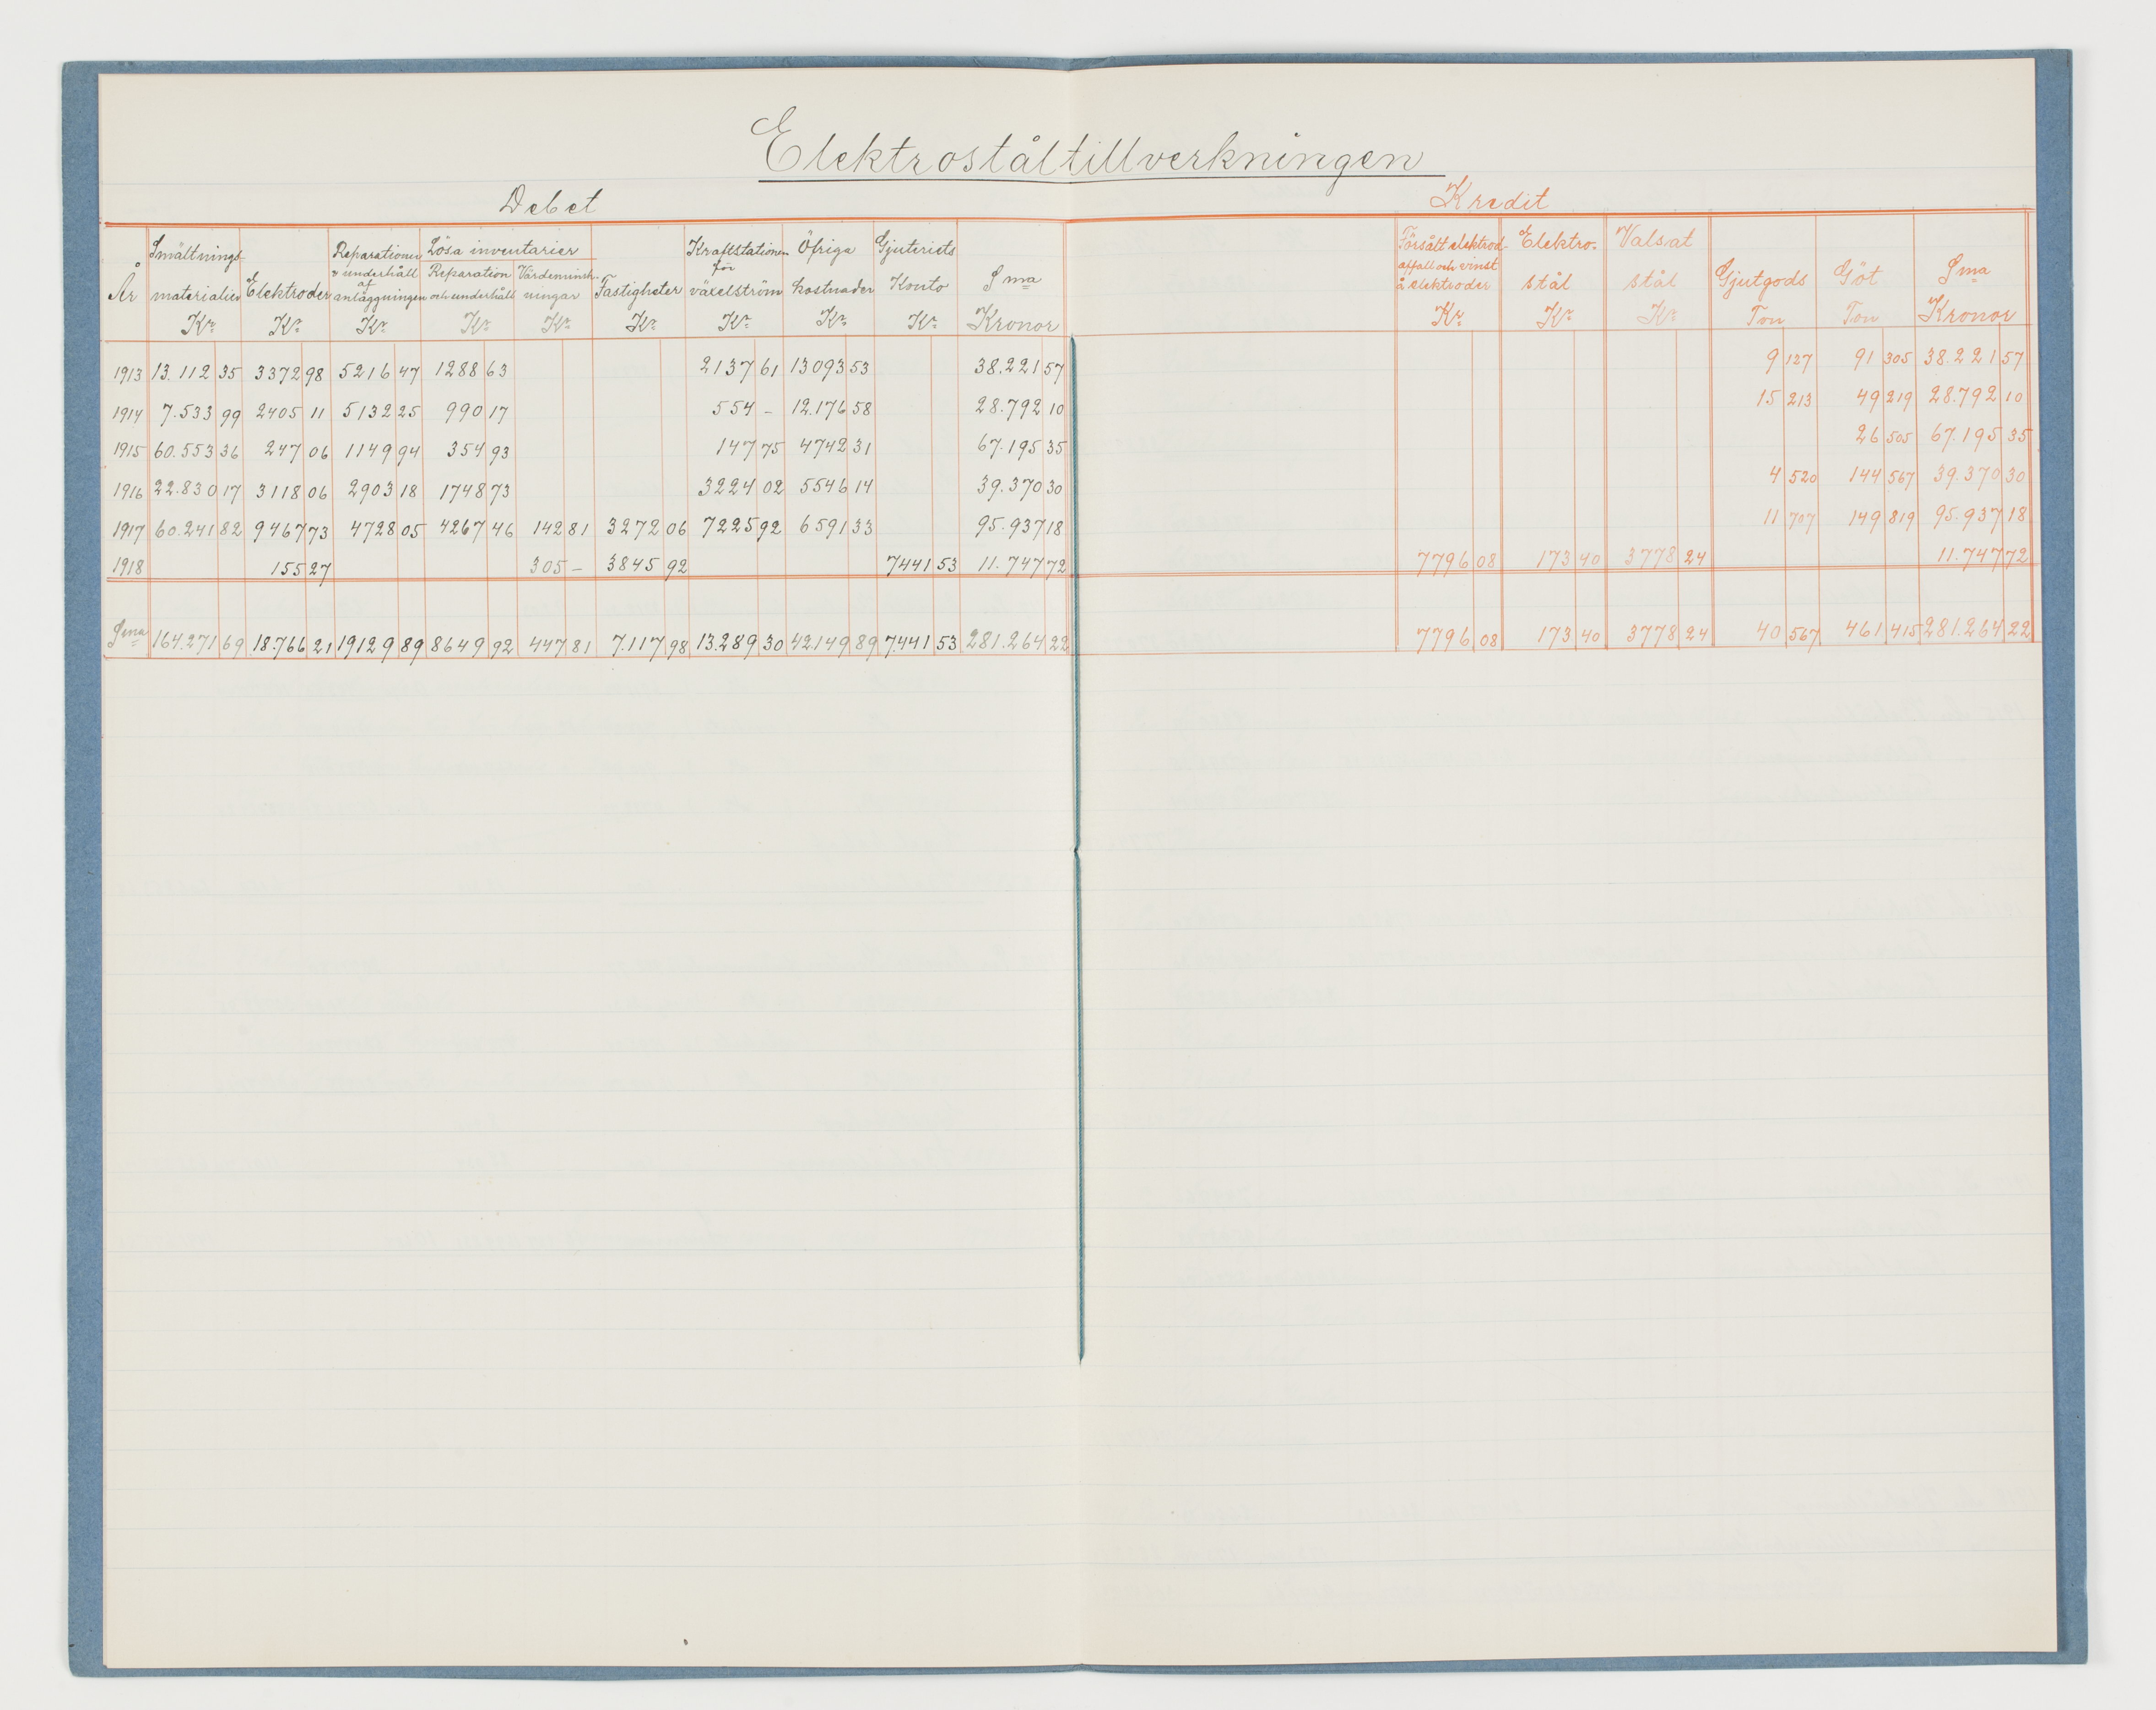 Elektroståltillverkningen
Debet
Kredit
År Smältnings materialier Kr Elektroder Kr Reparationer o underhåll af anläggningen Kr Lösa inventarier Reparation och underhåll Kr Värdeminsk- ningar Kr Fastigheter Kr Kraftstationen för växelström Kr Öfriga kostnader Kr Gjuteriets Konto Kr Sma Kronor
Försålt elektrod- affall och vinst å elektroder Kr Elektro- stål Kr Valsat stål Kr Gjutgods Ton Göt Ton Sma Kronor
1913 13.112 35 3372 98 5216 47 1288 63 2137 61 13093 53 38.221 57 9 127 91 305 38.221 57
1914 7.533 99 2405 11 5132 25 990 17 554 - 12.176 58 28.792 10 15 213 49 219 28.792 10
1915 60.553 36 247 06 1149 94 354 93 147 75 4742 31 67.195 35 26 505 67.195 35
1916 22.830 17 3118 06 2903 18 1748 73 3224 02 5546 14 39.370 30 4 520 144 567 39.370 30
1917 60.241 82 9467 73 4728 05 4267 46 142 81 3272 06 7225 92 6591 33 95.937 18 11 707 149 819 95.937 18
1918 155 27 305 - 3845 92 7441 53 11.747 72 7796 08 173 40 3778 24 11.747 72
Sma 164.271 69 18.766 21 19129 89 8649 92 447 81 7.117 98 13.289 30 42149 89 7.441 53 281.264 22 7796 08 173 40 3778 24 40 567 461 415 281.264 22